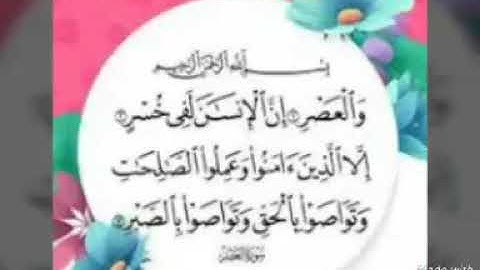 بسم الله الرحمن الرحيم
وَٱلْعَصْرِ ۝ إِنَّ ٱلْإِنسَٰنَ لَفِى خُسْرٍ ۝
إِلَّا ٱلَّذِينَ ءَامَنُوا۟ وَعَمِلُوا۟ ٱلصَّٰلِحَٰتِ
وَتَوَاصَوْا۟ بِٱلْحَقِّ وَتَوَاصَوْا۟ بِٱلصَّبْرِ ۝
سورة العصر
Made with